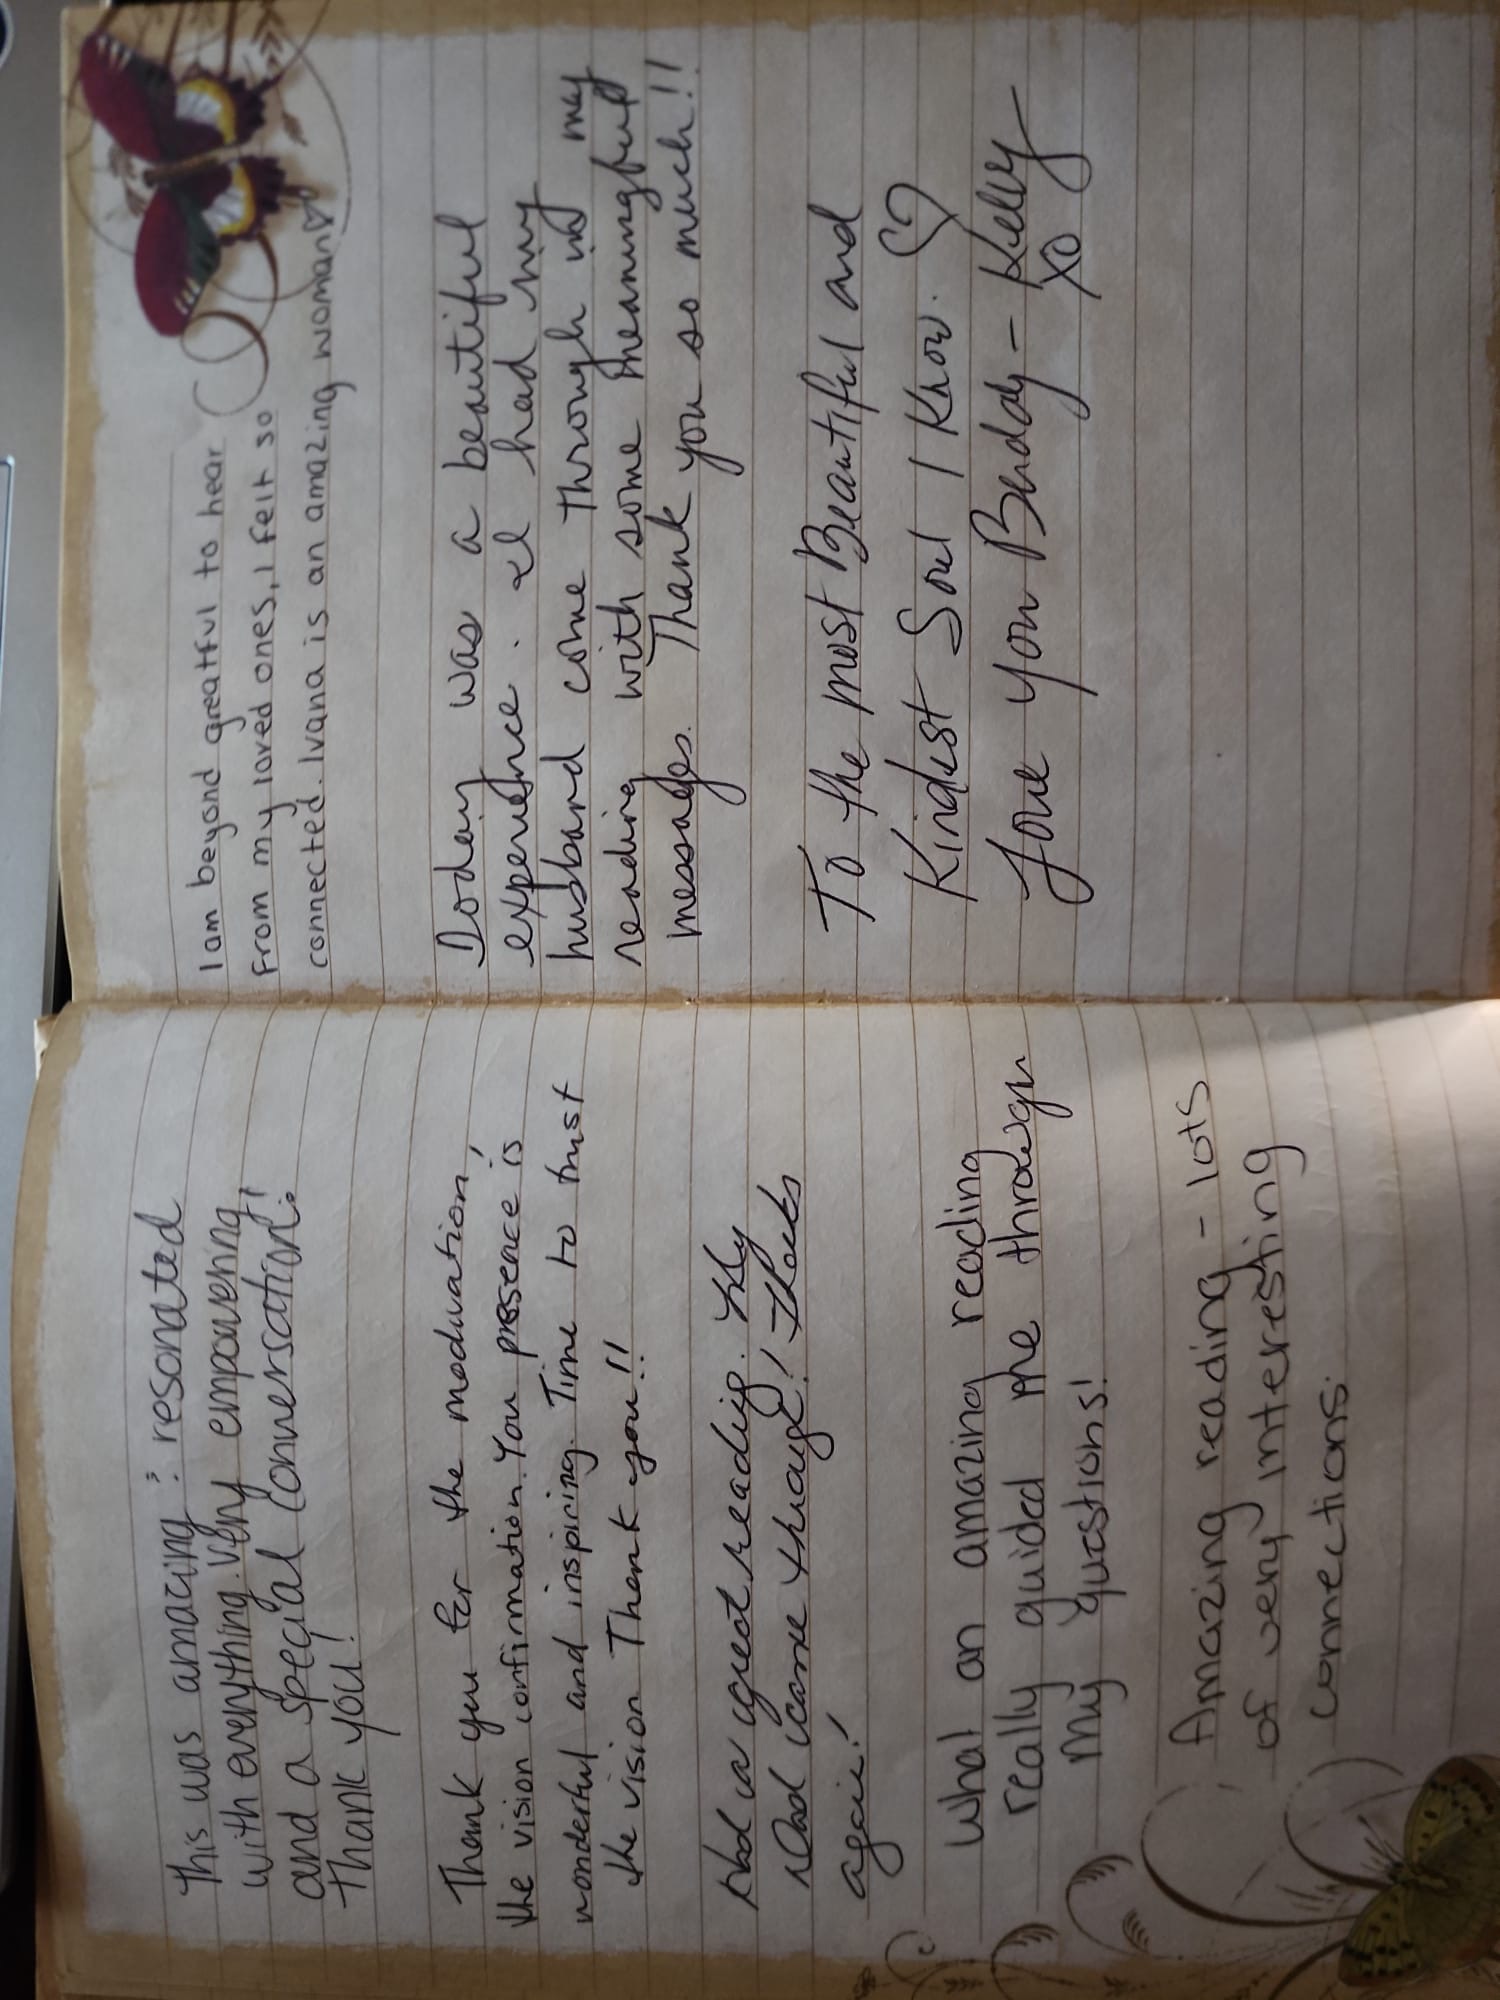 This was amazing & resonated
with everything. very empowering
and a special conversation!!
Thank you!
Thank you for the
the vision confirmation. You presence is
wonderful and inspiring. Time to trust
the vision Thank you!!
Had a great reading. My
Dad came through! Thanks
again!
What an amazing reading
really guided me through
my questions!
Amazing reading - lots
of very interesting
connections.
I am beyond greatful to hear
from my loved ones, I felt so
connected. Ivana is an amazing woman♡
Today was a beautiful
experience. I had my
husband come through in my
reading with some meaningful
messages. Thank you so much!!
To the most Beautiful and
Kindest Soul I Know. ♡
Love you Buddy - Kelly
xo